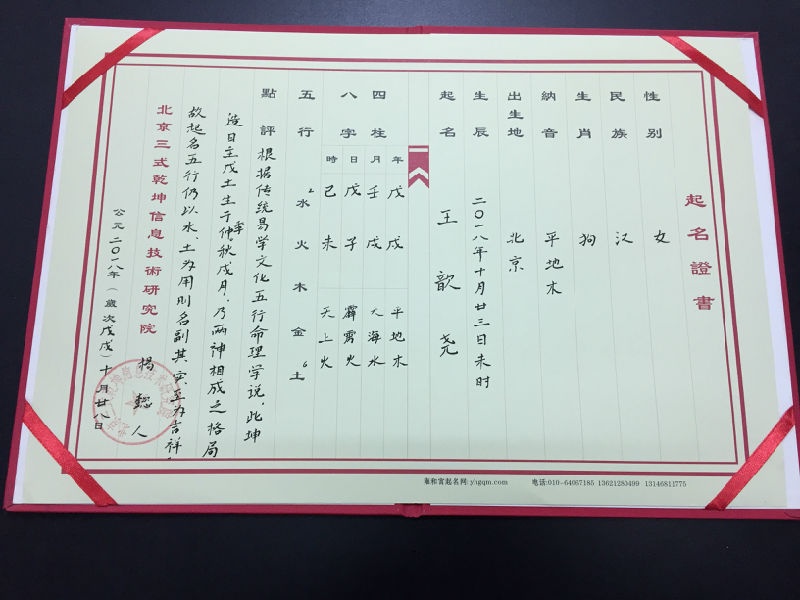 起名證書
性别 女
民族 汉
生肖 狗
納音 平地木
出生地 北京
生辰 二〇一八年十月廿三日未时
起名 王歆尧
四柱
八字
年 戊戌 平地木
月 壬戌 大海水
日 戊子 霹雳火
時 己未 天上火
五行 2水火木金6土
點評 根据传统易学文化五行命理学说，此坤
造日主戊土生于季秋戌月，乃两神相成之格局
故起名五行仍以水、土为用则名副其实，至为吉祥。
北京三式乾坤信息技術研究院 楊 人
公元二〇一八年（歲次戊戌）十月廿八日
雍和宫起名网: yigqm.com 电话:010-64067185 13621280499 13146811775